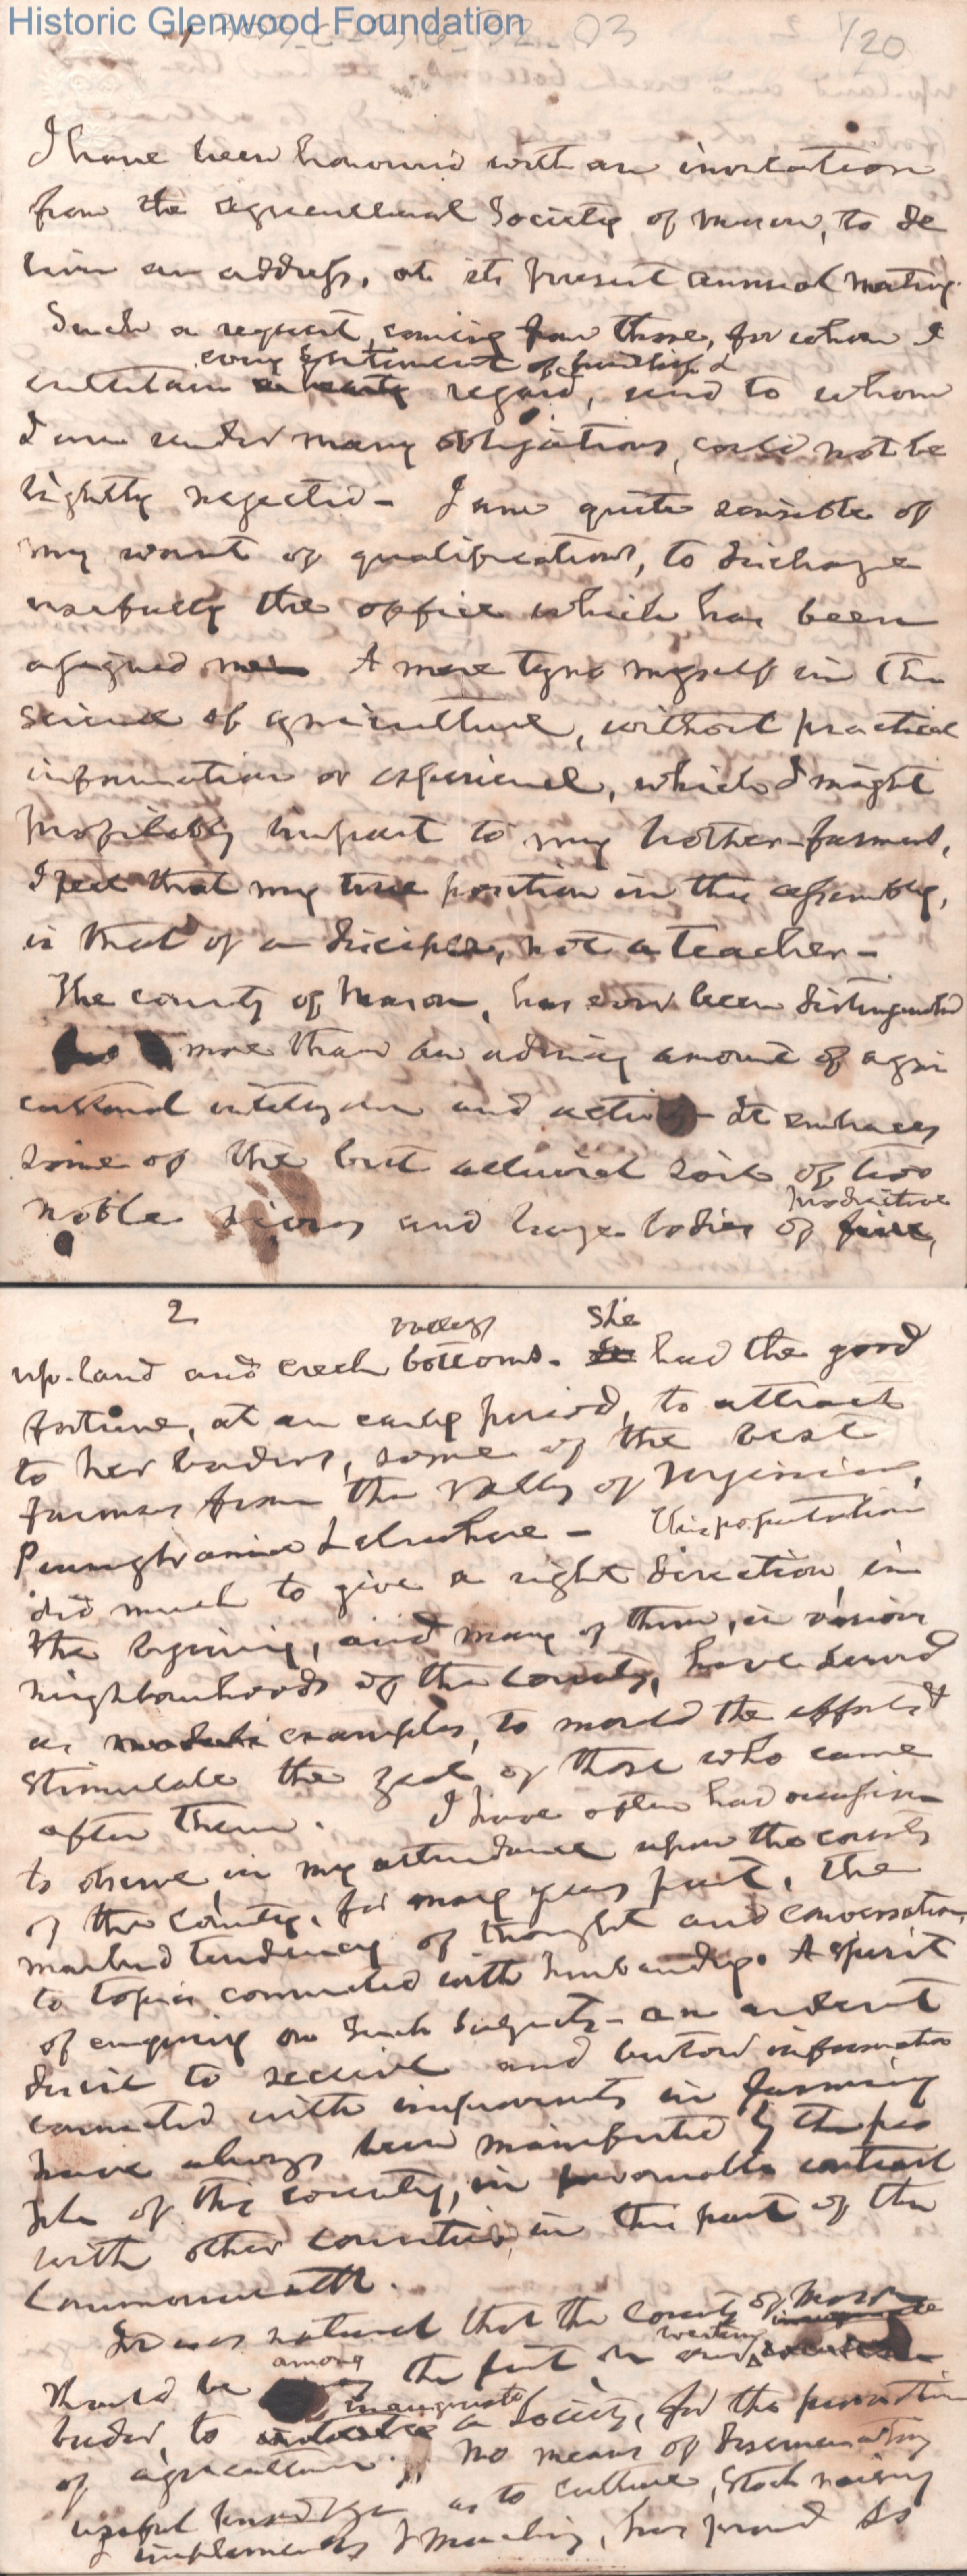 Historic Glenwood Foundation
03
1/20
I have been honoured with an invitation
from the Agricultural Society of Mason, to de
liver an address, at its present annual meeting.
Such a request, coming from those, for whom I
every sentiment of friendship &
entertain regard, and to whom
I am under many obligations, could not be
lightly rejected - I am quite sensible of
my want of qualifications, to discharge
usefully the office which has been
assigned me A mere tyro myself in the
science of agriculture, without practical
information or experience, which I might
profitably impart to my brother-farmers,
I feel that my true position in this assembly,
is that of a disciple, not a teacher -
The county of Mason, has ever been distinguished
more than an ordinary amount of agri
cultural intelligence and activity - It embraces
some of the best alluvial soils of two
productive
noble rivers and large bodies of fine,
2
valleys she
up-land and creek bottoms. had the good
fortune, at an early period, to attract
to her borders, some of the best
farmers from the Valley of Virginia,
Pennsylvania & elsewhere - This population
did much to give a right direction in
the begining, and many of them, in various
neighbourhoods of the County, have served
as models examples, to mould the efforts &
stimulate the zeal of those who came
after them. I have often had occasion
to observe, in my attendance upon the courts
of the County, for many years past, the
marked tendency of thought and conversation,
to topics connected with husbandry. A spirit
of enquiry on such subjects - an ardent
desire to receive and bestow information
connected with improvements in farming
have always been manifested by the peo
ple of this county, in favourable contrast
with other counties, in this part of the
Commonwealth.
It was natural that the County of Mason
western
should be among the first on our
inaugurate
border, to a Society, for the promotion
of agriculture. No means of disseminating
useful knowledge as to culture, stock raising
& implements & machinery, has proved so